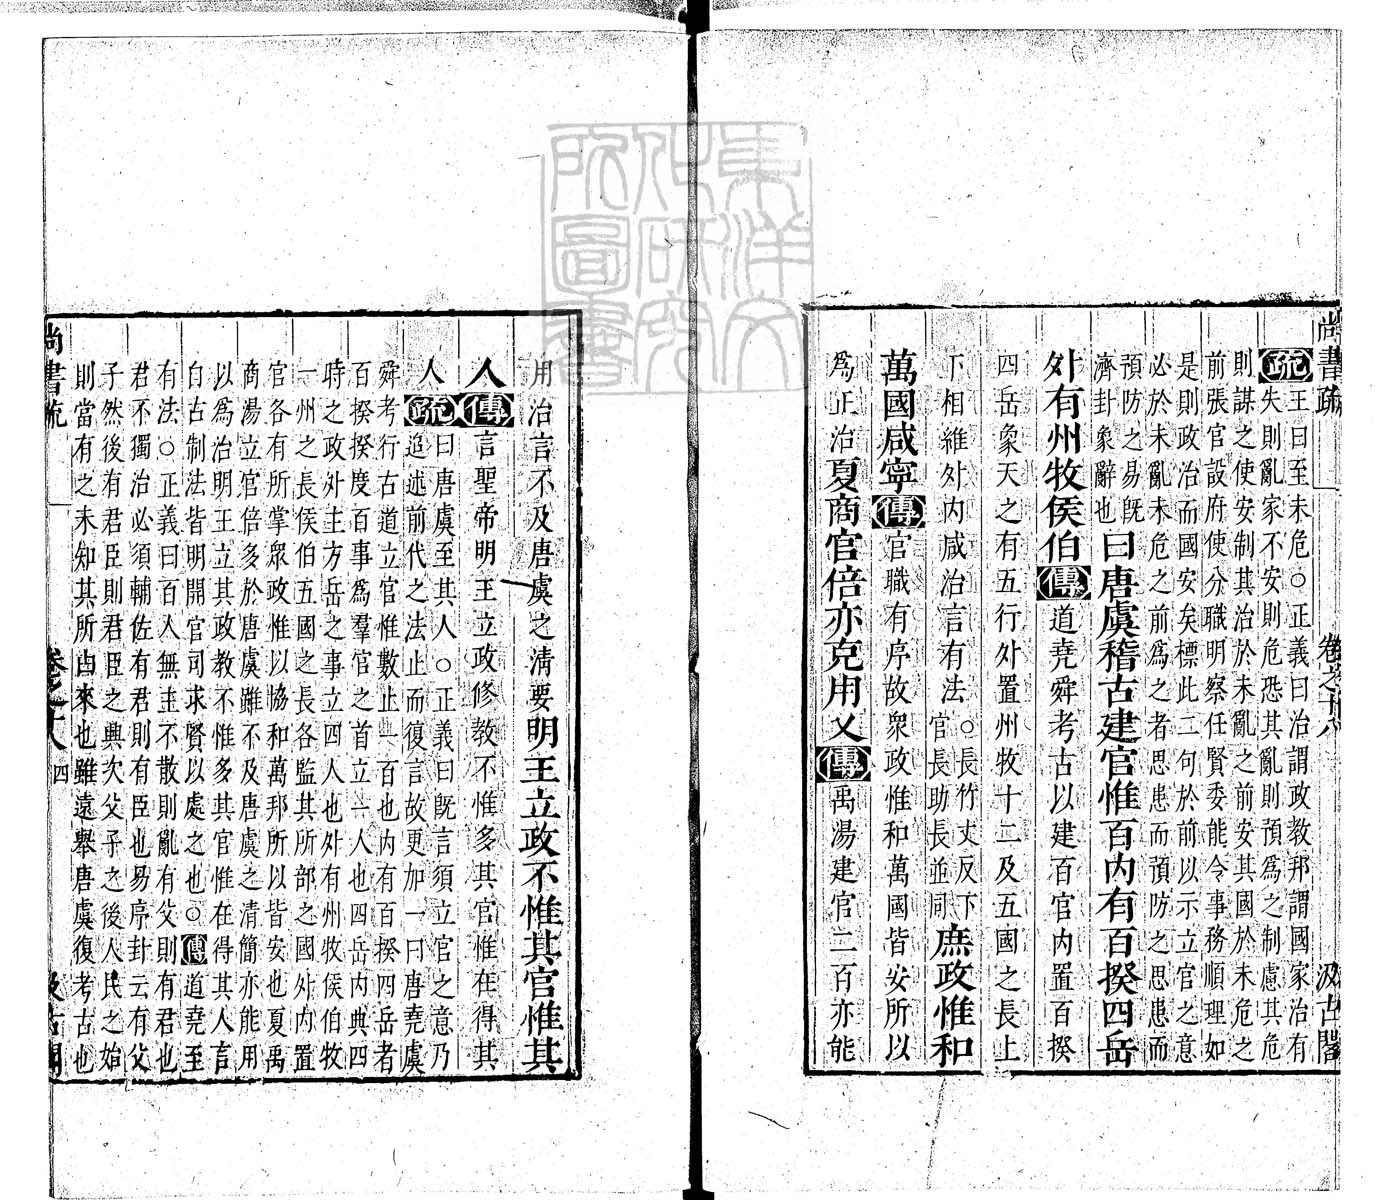 尚書疏　卷之十八　汲古閣
疏王曰至未危○正義曰治謂政教邦謂國家治有
失則亂家不安則危恐其亂則預爲之制慮其危
則謀之使安制其治於未亂之前安其國於未危之
前張官設府使分職明察任賢委能令事務順理如
是則政治而國安矣標此二句於前以示立官之意
必於未亂未危之前爲之者思患而預防之思患而
預防之易旣
濟卦象辭也
曰唐虞稽古建官惟百內有百揆四岳
外有州牧侯伯傳道堯舜考古以建百官內置百揆
四岳象天之有五行外置州牧十二及五國之長上
下相維外內咸治言有法
○長竹丈反下
官長助長並同
庶政惟和
萬國咸寧傳官職有序故衆政惟和萬國皆安所以
爲正治夏商官倍亦克用乂傳禹湯建官二百亦能
用治言不及唐虞之清要明王立政不惟其官惟其
人傳言聖帝明王立政修教不惟多其官惟在得其
人疏曰唐虞至其人○正義曰旣言須立官之意乃
追述前代之法止而復言故更加一曰唐堯虞
舜考行古道立官惟數止一百也內有百揆四岳者
百揆揆度百事爲羣官之首立一人也四岳內典四
時之政外主方岳之事立四人也外有州牧侯伯牧
一州之長侯伯五國之長各監其所部之國外內置
官各有所掌眾政惟以協和萬邦所以皆安也夏禹
商湯立官倍多於唐虞雖不及唐虞之清簡亦能用
以爲治明王立其政教不惟多其官惟在得其人言
自古制法皆明開官司求賢以處之也○傳道堯至
有法○正義曰百人無主不散則亂有父則有君也
君不獨治必須輔佐有君則有臣也易序卦云有父
子然後有君臣則君臣之興次父子之後人民之始
則當有之未知其所由來也雖遠舉唐虞復考古也
尚書疏　卷之十八　四　汲古閣